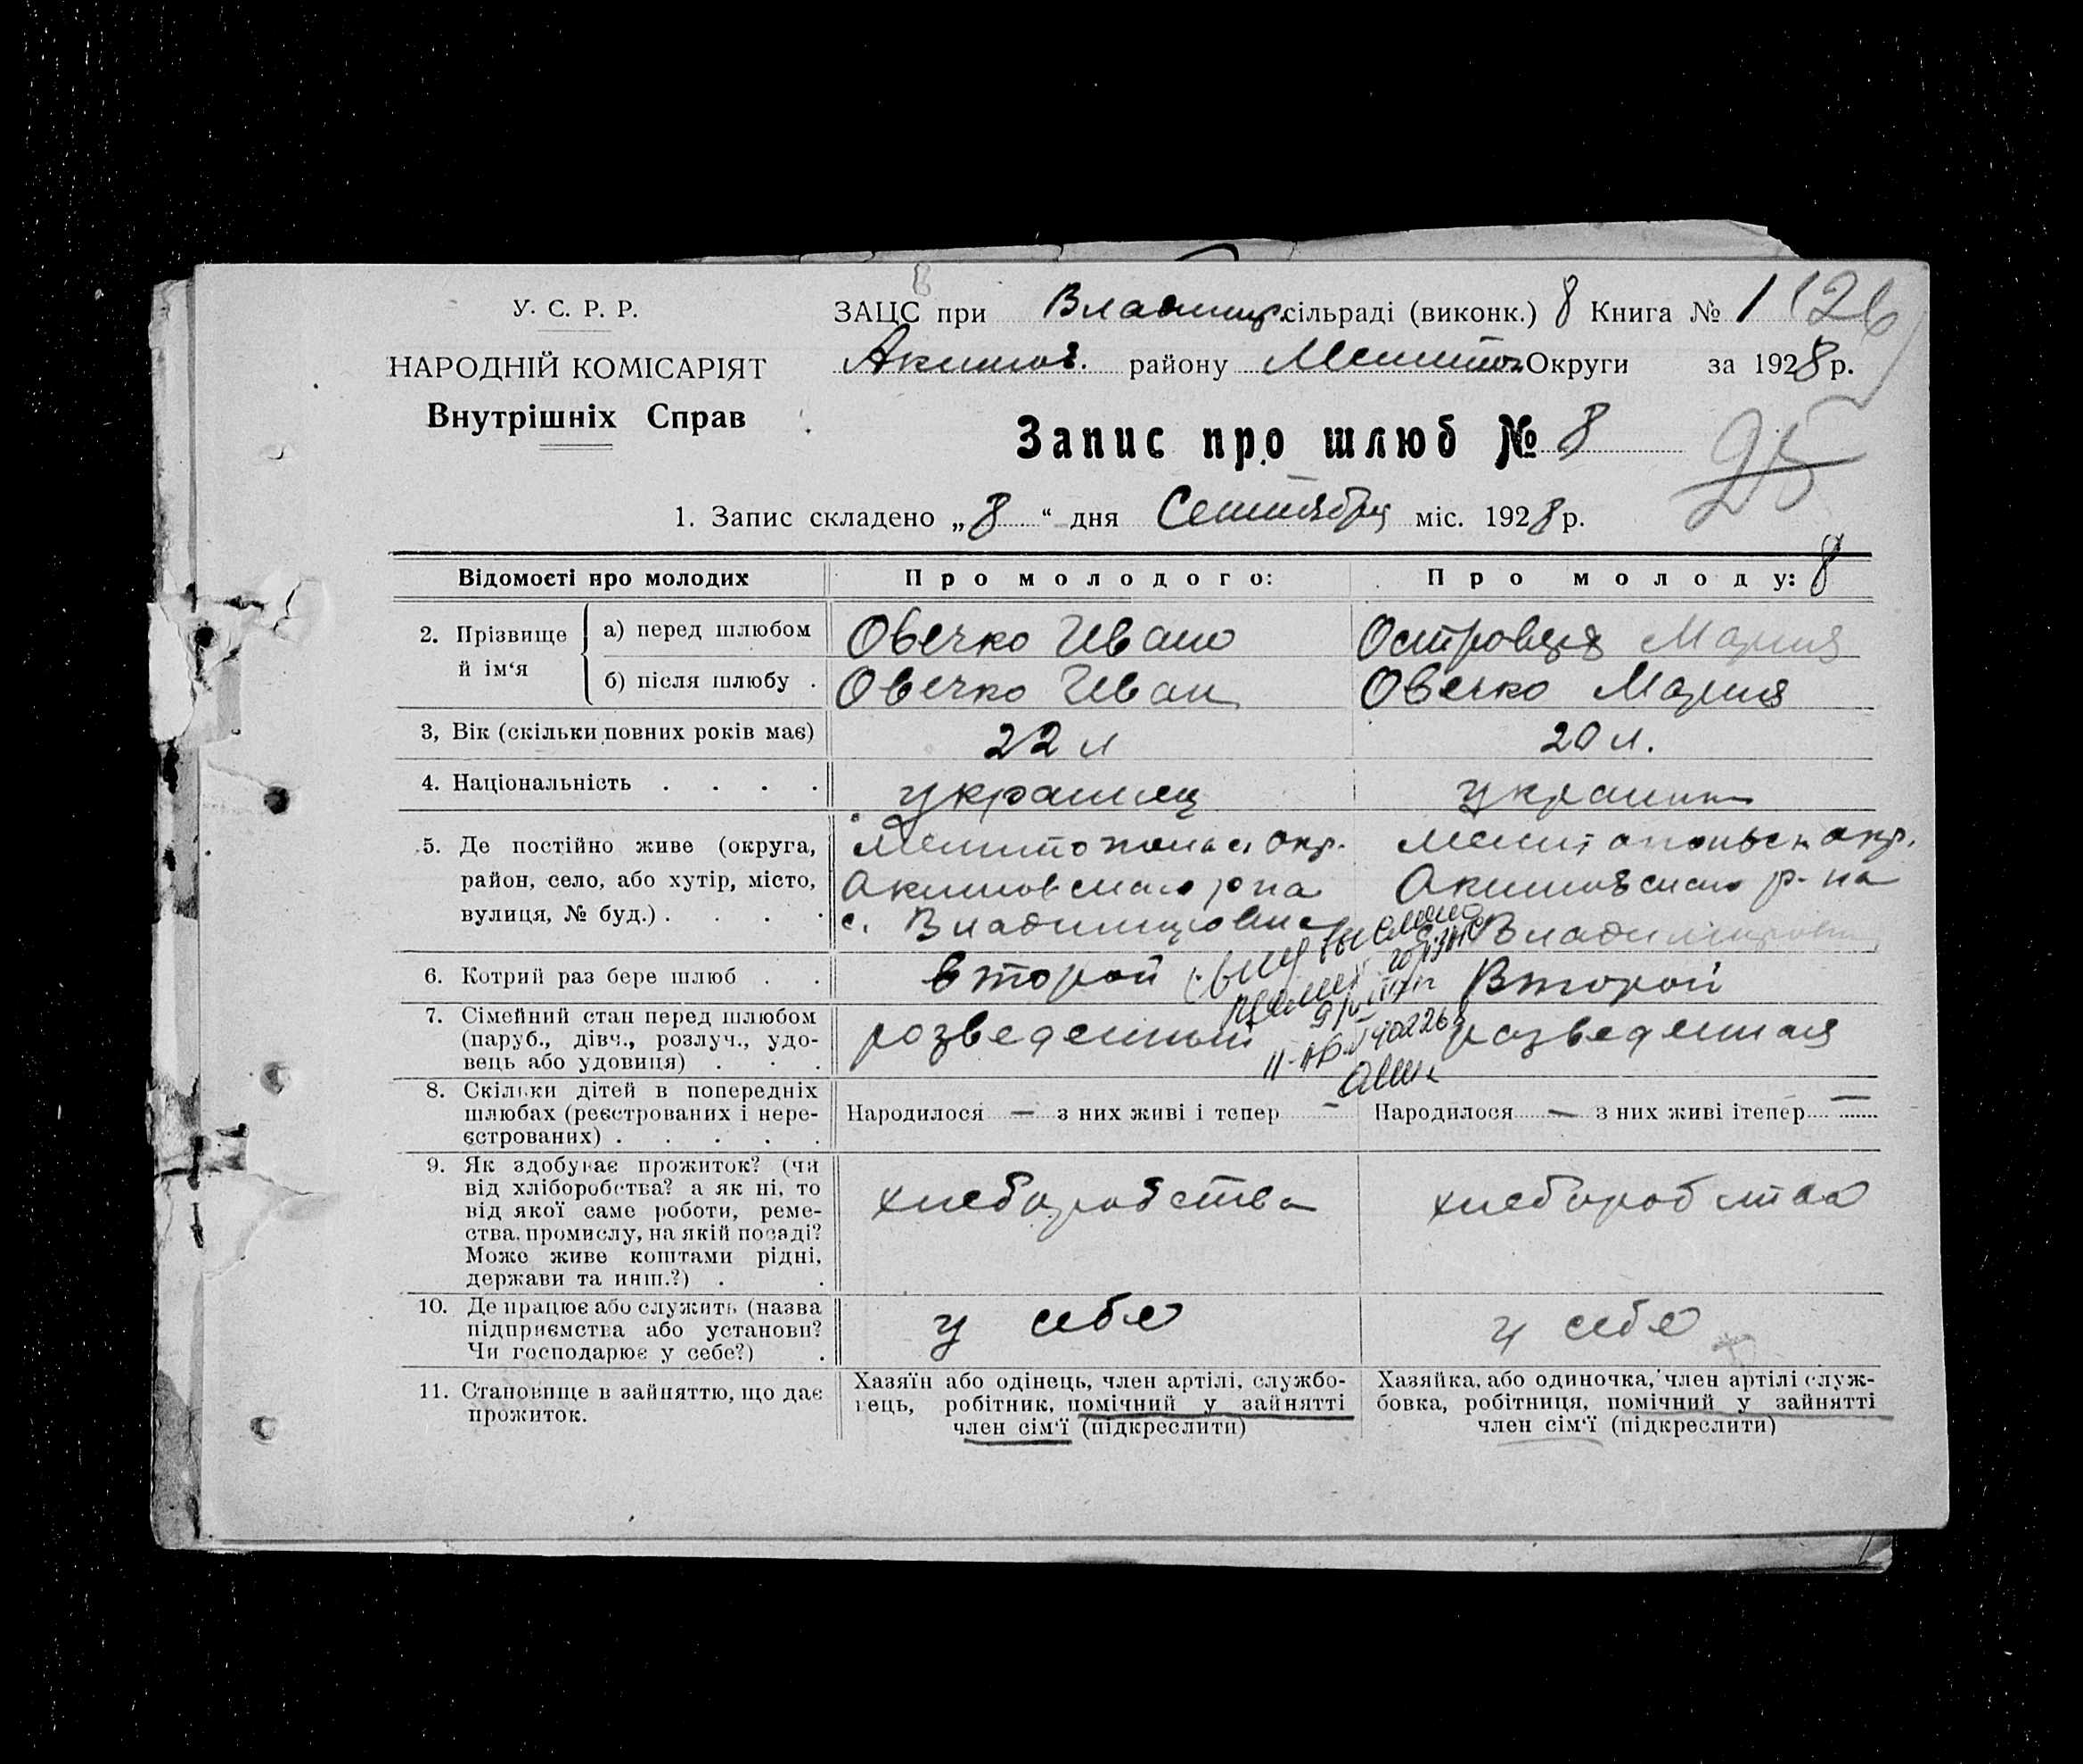 У. С. Р. Р.
НАРОДНІЙ КОМІСАРІЯТ
Внутрішніх Справ
ЗАЦС при Владимир. сільраді (виконк.) 8 Книга № 1 126
Акимов. району Мелитоп. Округи за 1928 р.
Запис про шлюб № 8
25
1. Запис складено „8“ дня Сентября міс. 1928 р.
Відомості про молодих Про молодого: Про молоду: 8
2. Прізвище й ім‘я
а) перед шлюбом Овечко Иван Мария
б) після шлюбу . Овечко Иван Овечко Мария
3, Вік (скільки повних років має) 22 л 20 л.
4. Національність . . . . украинец украинк
5. Де постійно живе (округа, Мелитопольск окр. Мелитопольск окр.
район, село, або хутір, місто, Акимовского р на Акимовского р-на
вулиця, № буд.) . . . . с. Владимировке Владимировк
6. Котрий раз бере шлюб . . второй Второй
7. Сімейний стан перед шлюбом
(паруб., дівч., розлуч., удо-
вець або удовиця) . . . розведенный разведенная
II-АБ № 402268
8. Скільки дітей в попередніх
шлюбах (реєстрованих і нере-
єстрованих) . . . . .
Народилося — з них живі і тепер —
Народилося — з них живі ітепер —
9. Як здобуває прожиток? (чи
від хліборобства? а як ні, то
від якої саме роботи, реме-
ства, промислу, на якій посаді?
Може живе коштами рідні,
держави та инш.?) . .
хлеборобства хлеборобства
10. Де працює або служить (назва
підприємства або установи?
Чи господарює у себе?) .
у себе у себе
11. Становище в зайняттю, що дає
прожиток.
Хазяїн або одінець, член артілі, службо-
вець, робітник, помічний у зайнятті
член сім‘ї (підкреслити)
Хазяйка, або одиночка, член артілі служ-
бовка, робітниця, помічний у зайнятті
член сім‘ї (підкреслити)